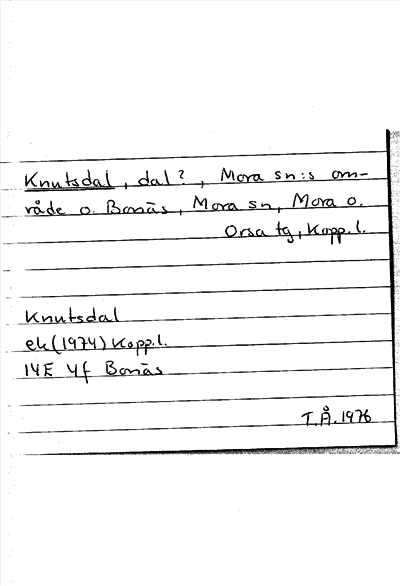 Knutsdal, dal?, Mora sn:s om-
råde o. Bonäs, Mora sn, Mora o.
Orsa tg, Kopp. l.
Knutsdal
ek (1974) Kopp. l.
14E 4f Bonäs
T.Å. 1976